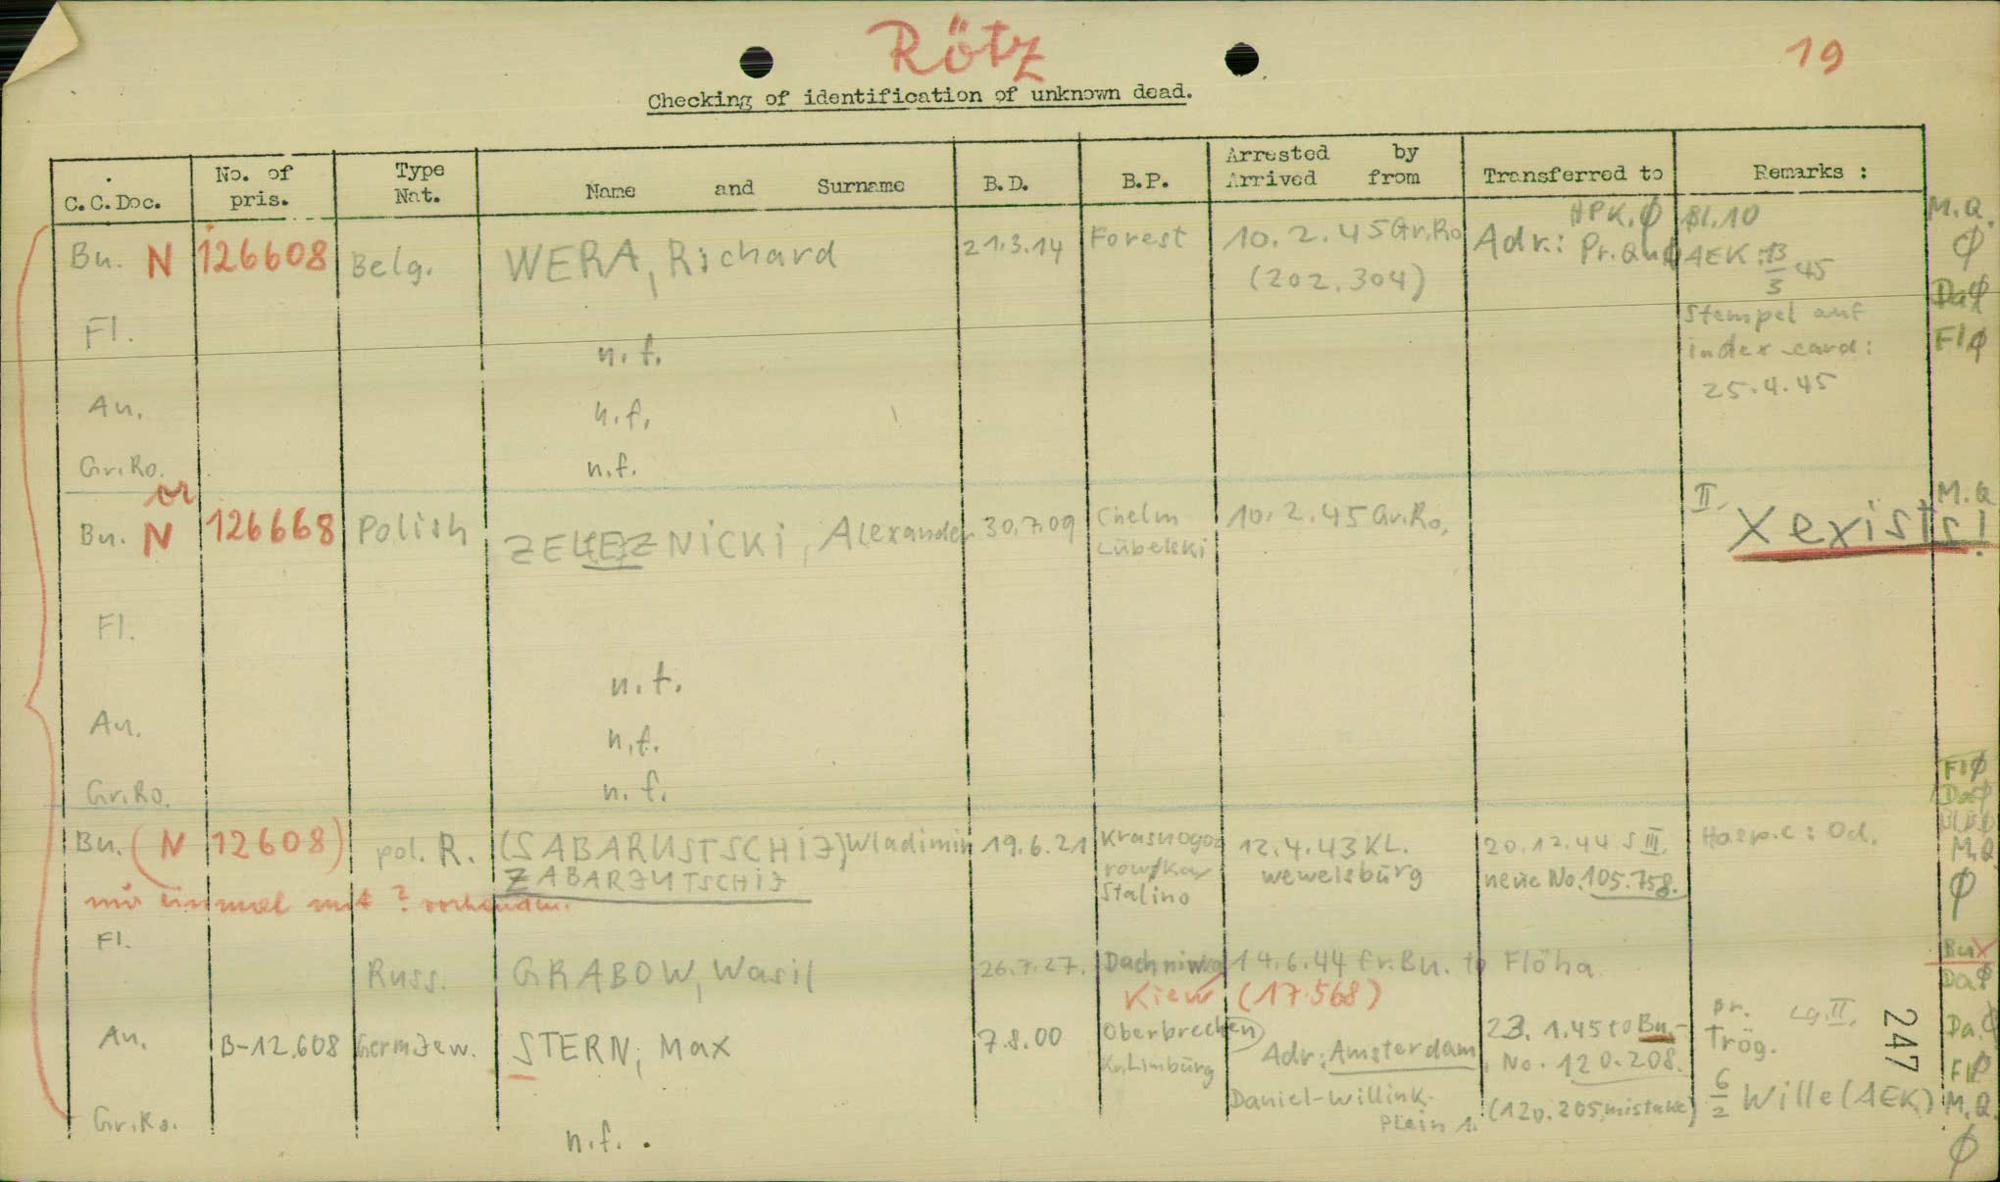 Rötz
19
Checking of identification of unknown dead.
C.C.Doc. No. of pris. Type Nat. Name and Surname B.D. B.P. Arrested by Arrived from Transferred to Remarks :
Bu. N 126608 Belg. WERA, Richard 21.3.14 Forest 10.2.45 Gr.Ro (202.304) Adr.: HPK.Ø Bl.10
AEK: 13/3 45
M.Q. Ø
DaØ
Fl. n.f. Stempel auf index-card: FlØ
25.4.45
An. n.f.
Gr.Ro. n.f.
or
Bu. N 126668 Polish ZELEZNICKI, Alexander 30.7.09 Chelm Lübelski 10.2.45 Gr.Ro. II. X exists! M.Q
Fl. n.f.
An. n.f.
Gr.Ro. n.f.
FlØ
DaØ
Bu. (N 12608) pol. R. (SABARUSTSCHIJ) Wladimir 19.6.21 12.4.43 KL. 20.12.44 S III. Hosp.c: Od. M.Q
ZABARJUTSCHIJ Stalino wewelsbürg neue No. 105.758. Ø
nur einmal mit ? vorhanden.
Fl. Russ. GRABOW, Wasil 26.7.27. 14.6.44 fr. Bu. to Flöha BuX
Kiew (17.568) DaØ
An. B-12.608 Germ Jew. STERN, Max 7.8.00 Oberbrechen Kr.Limbürg Adr: Amsterdam 23.1.45 to Bu.- No. 120.208. pr. Trög. Lg.II. Da.Ø
247
FlØ
Daniel-Willink-Plein 1. (120.205, mistake) 6/2 Wille (AEK) M.Q.
Gr.Ro. n.f. Ø